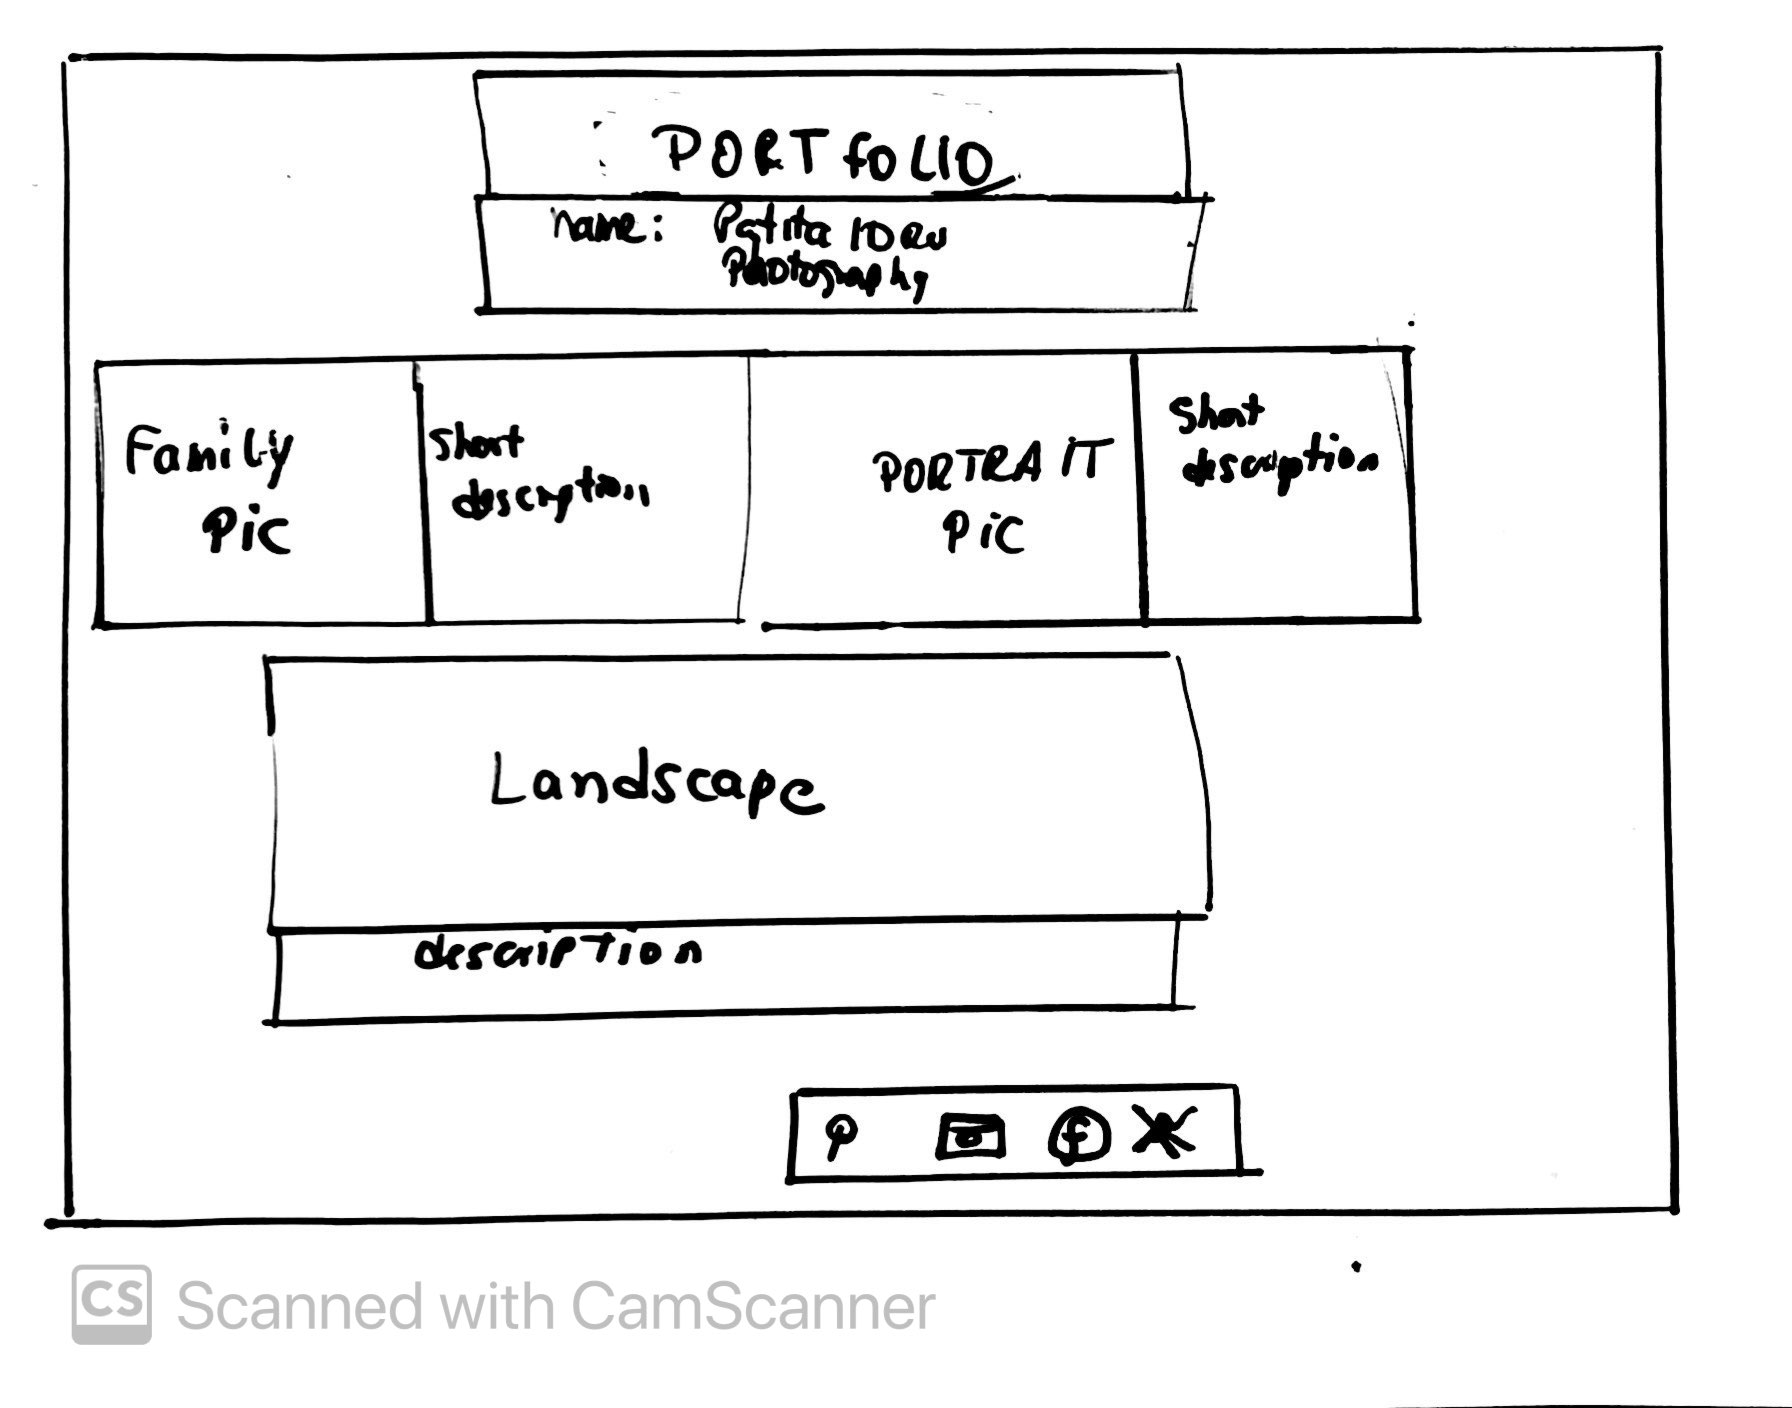 PORTfOLIO
name:
Photography
Family
Pic
Short
description
PORTRAIT
PIC
Short
description
Landscape
description
f
CS Scanned with CamScanner